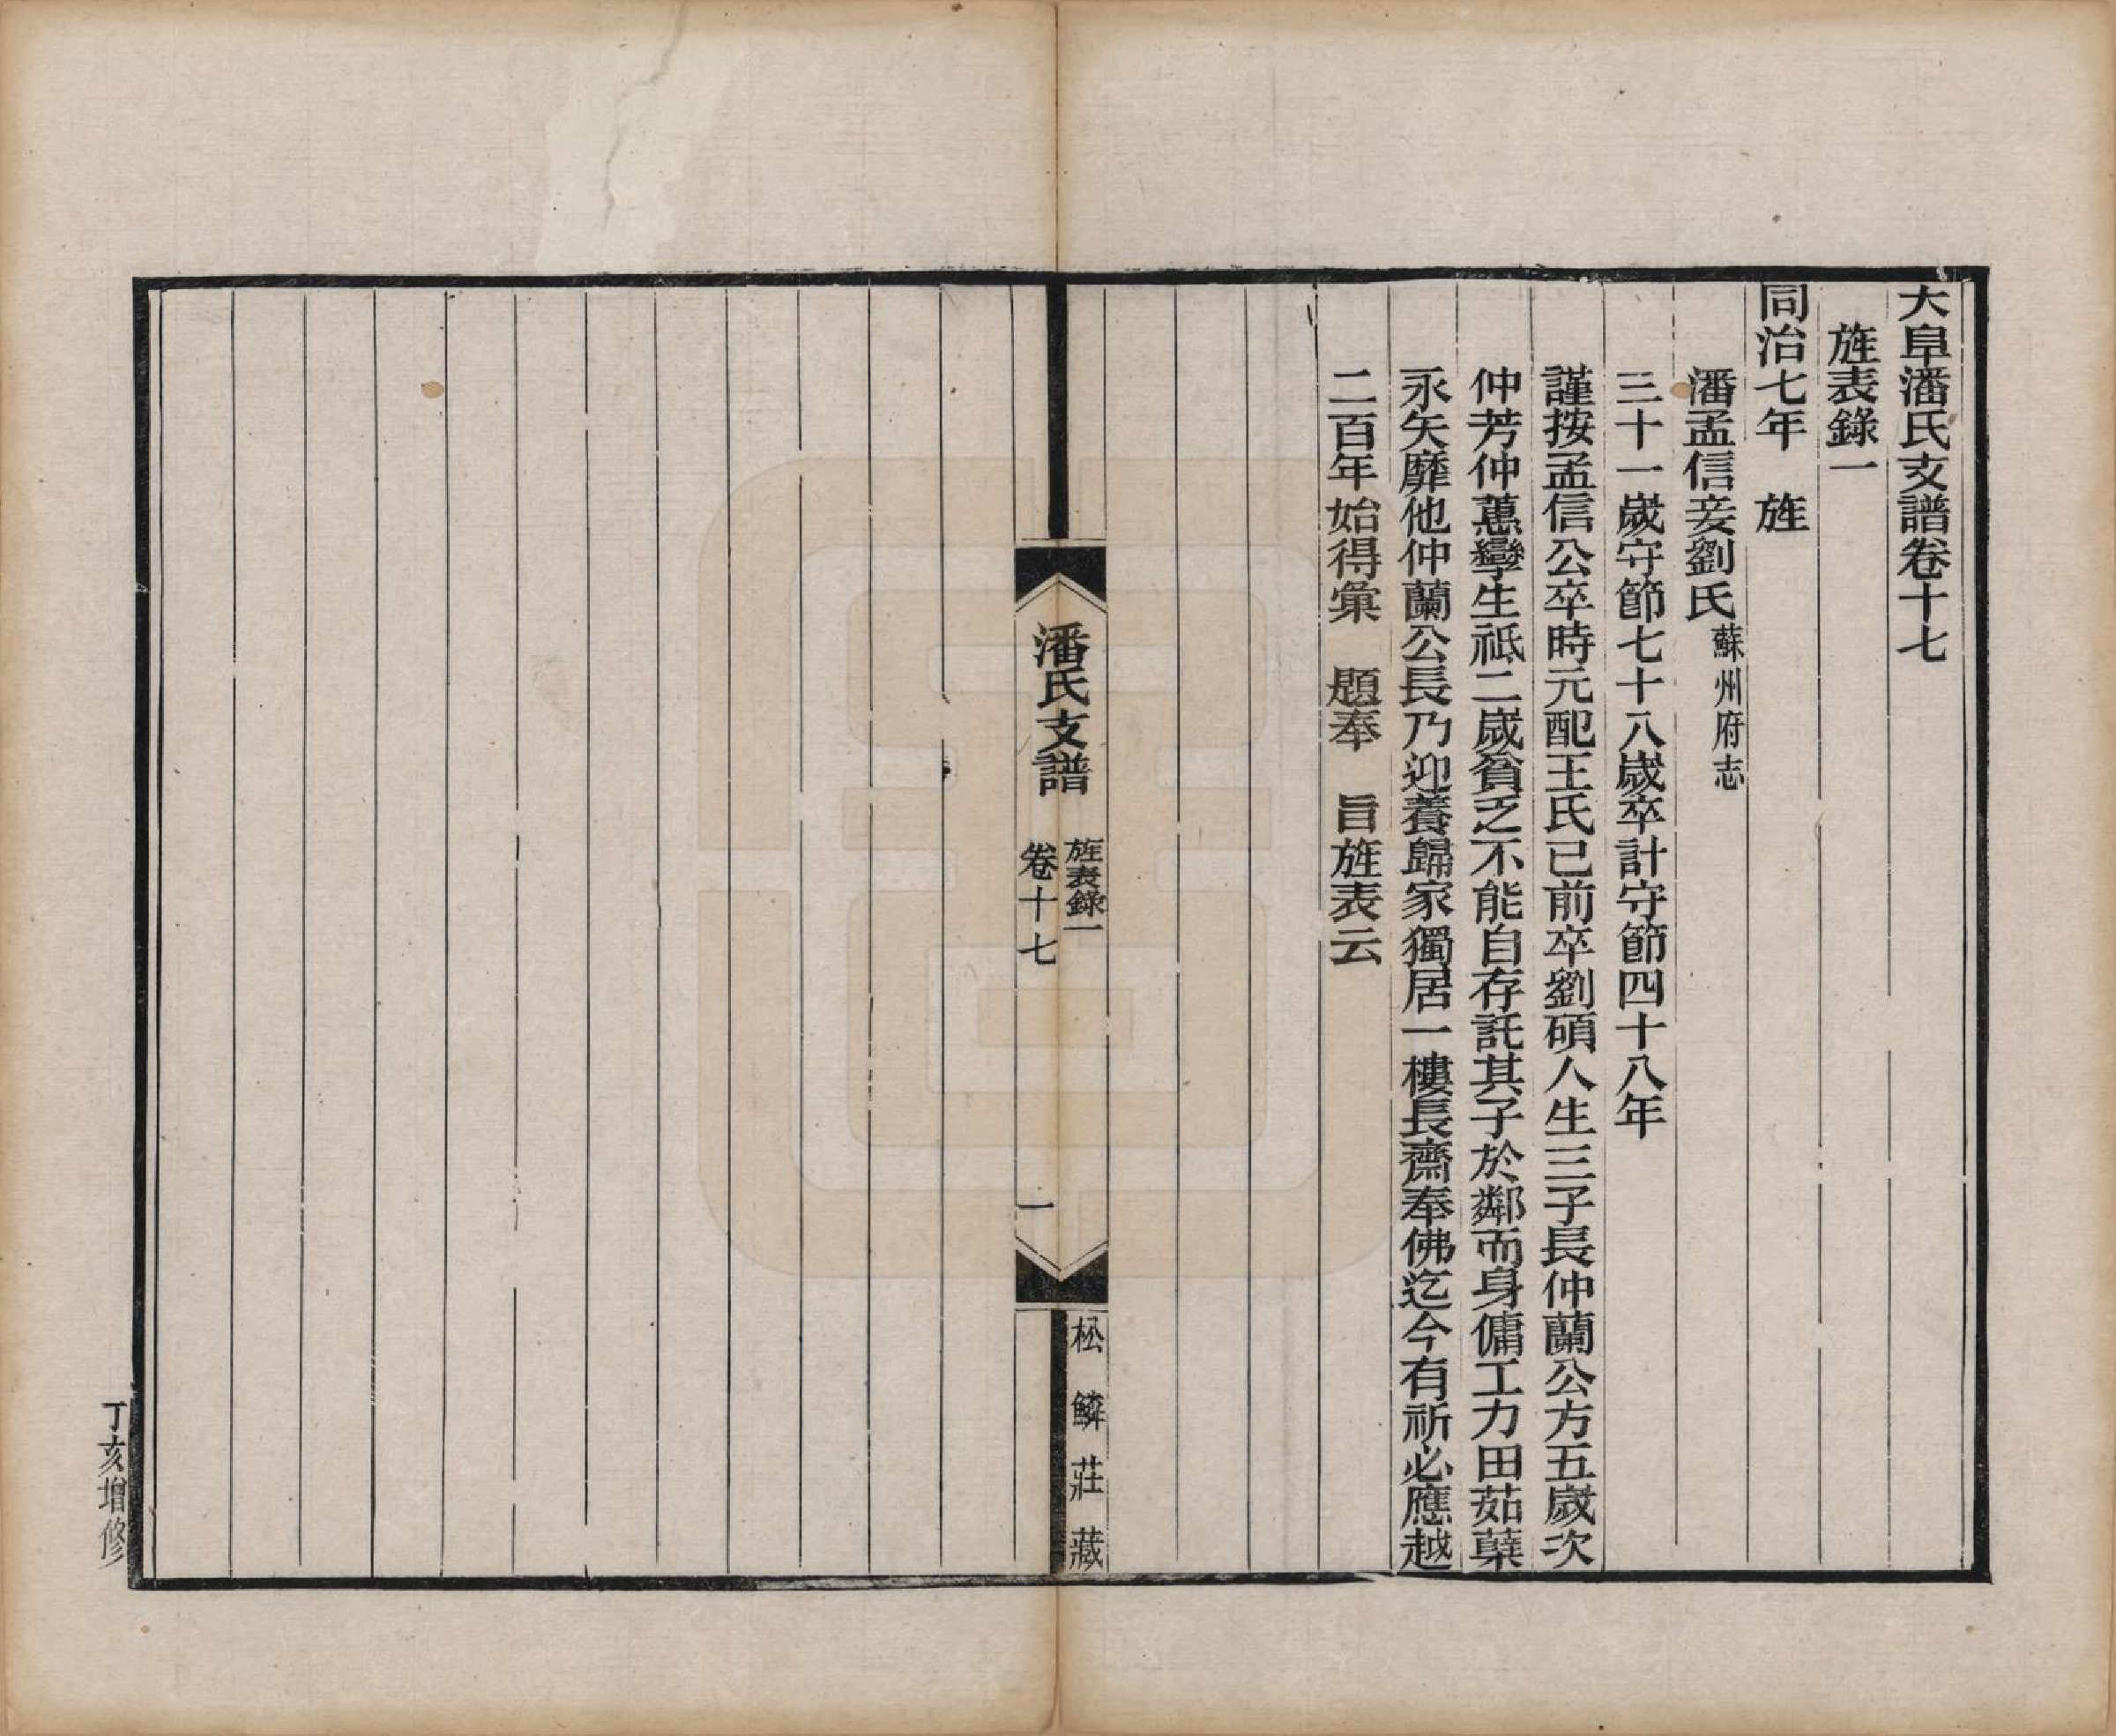 大阜潘氏支譜卷十七
旌表錄一
同治七年　旌
潘孟信妾劉氏蘇州府志
三十一歲守節七十八歲卒計守節四十八年
謹按孟信公卒時元配王氏已前卒劉碩人生三子長仲蘭公方五歲次
仲芳仲蕙孿生祗二歲貧乏不能自存託其子於鄰而身傭工力田茹蘖
永矢靡他仲蘭公長乃迎養歸家獨居一樓長齋奉佛迄今有祈必應越
二百年始得彙　題奉　旨旌表云
潘氏支譜
旌表錄一
卷十七
一
松鱗莊藏
丁亥增修